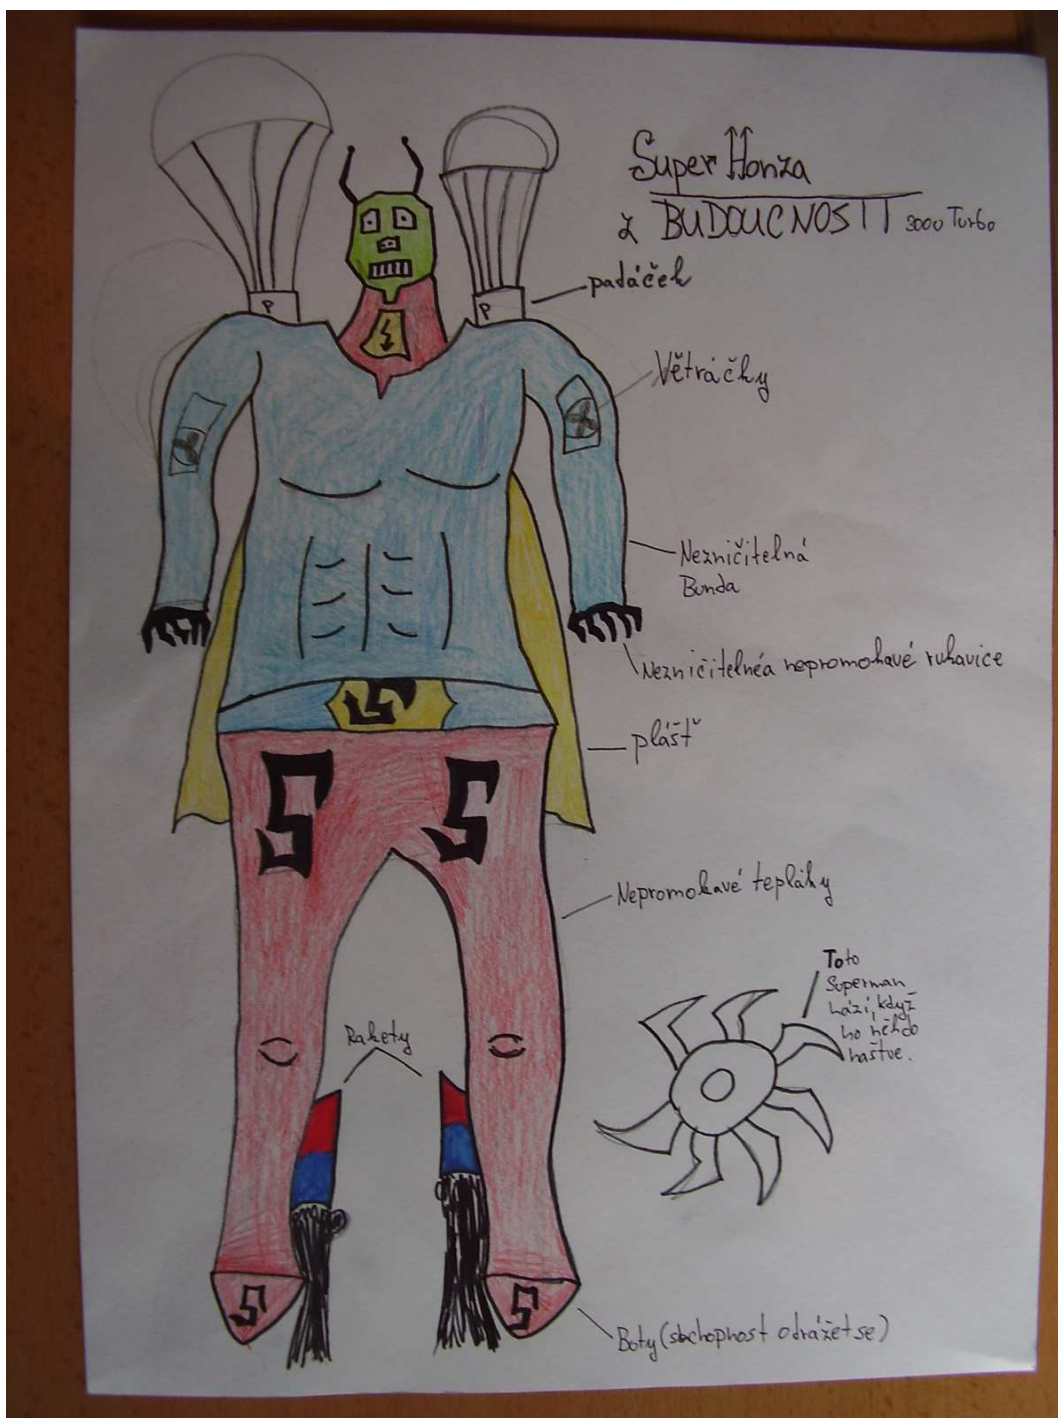 Super Honza
z BUDOUCNOSTI 3000 Turbo
padáček
P
P
Větráčky
Nezničitelná
Bunda
Nezničitelné a nepromokavé rukavice
plášť
S
S
S
Nepromokavé tepláky
Toto
Superman
hází, když
ho někdo
naštve.
Rakety
S
S
Boty (schopnost odrážet se)